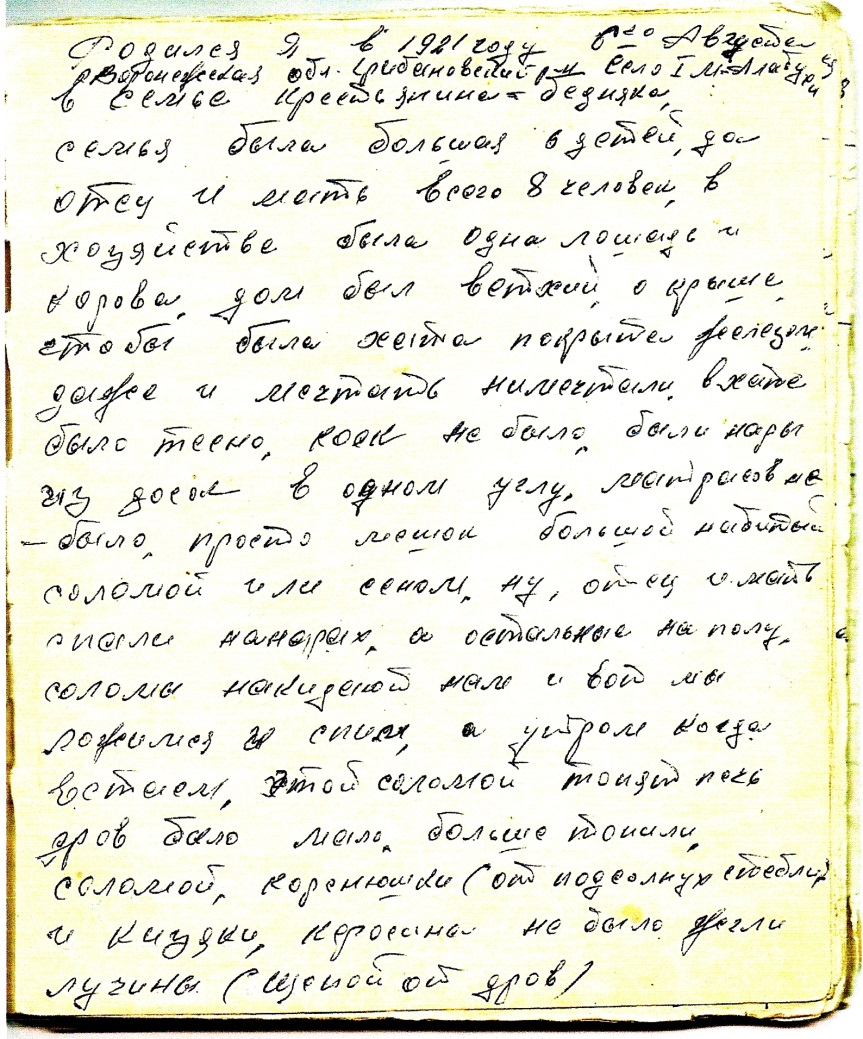 Родился я в 1921 году 6го Августа
Воронежская обл. Грибановский р-н Село I М-Алабухи
в семье крестьянина-бедняка,
семья была большая 6 детей, да
отец и мать всего 8 человек, в
хозяйстве была одна лошадь и
корова, дом был ветхий, о крыше
чтобы была хата покрыта железом
даже и мечтать нимечтали, в хате
было тесно, коек не было, были нары
из досок в одном углу, матрасов не
- было, просто мешок большой набитый
соломой или сеном, ну, отец и мать
спали нанарах, а остальные на полу,
соломы накидают нам и вот мы
ложимся и спим, а утром когда
встаем, этой соломой топят печь
дров было мало, больше топили
соломой, коренюшки (от подсолнух стебли)
и кизяки, керосина не было жгли
лучины (щепой от дров)